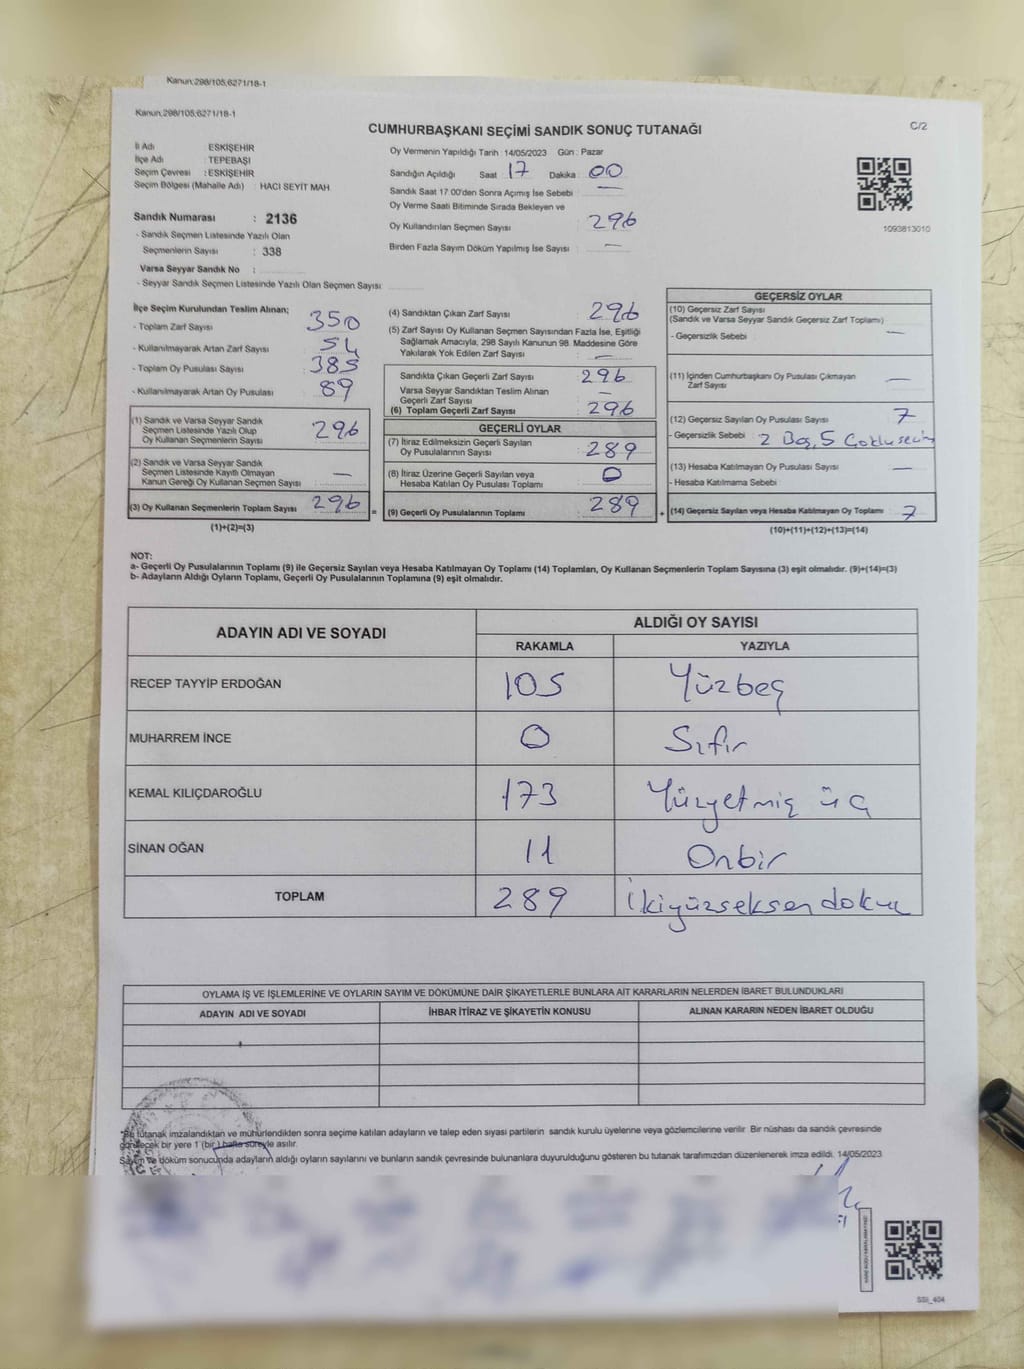 Kanun:298/105;6271/18-1
Kanun:298/105;6271/18-1
C/2
CUMHURBAŞKANI SEÇİMİ SANDIK SONUÇ TUTANAĞI
İl Adı ESKİŞEHİR
İlçe Adı : TEPEBAŞI
Seçim Çevresi : ESKİŞEHİR
Seçim Bölgesi (Mahalle Adı) : HACI SEYİT MAH
Sandık Numarası : 2136
- Sandık Seçmen Listesinde Yazılı Olan
Seçmenlerin Sayısı : 338
Varsa Seyyar Sandık No :
- Seyyar Sandık Seçmen Listesinde Yazılı Olan Seçmen Sayısı
Oy Vermenin Yapıldığı Tarih : 14/05/2023 Gün : Pazar
Sandığın Açıldığı Saat : 17 Dakika : 00
Sandık Saat 17:00'den Sonra Açımış İse Sebebi : —
Oy Verme Saati Bitiminde Sırada Bekleyen ve
Oy Kullandırılan Seçmen Sayısı : 296
Birden Fazla Sayım Döküm Yapılmış İse Sayısı : —
1093813010
İlçe Seçim Kurulundan Teslim Alınan;
- Toplam Zarf Sayısı : 350
- Kullanılmayarak Artan Zarf Sayısı : 54
- Toplam Oy Pusulası Sayısı : 385
- Kullanılmayarak Artan Oy Pusulası : 89
(1) Sandık ve Varsa Seyyar Sandık
Seçmen Listesinde Yazılı Olup
Oy Kullanan Seçmenlerin Sayısı : 296
(2) Sandık ve Varsa Seyyar Sandık
Seçmen Listesinde Kayıtlı Olmayan
Kanun Gereği Oy Kullanan Seçmen Sayısı : —
(3) Oy Kullanan Seçmenlerin Toplam Sayısı : 296
(1)+(2)=(3)
(4) Sandıktan Çıkan Zarf Sayısı : 296
(5) Zarf Sayısı Oy Kullanan Seçmen Sayısından Fazla İse, Eşitliği
Sağlamak Amacıyla, 298 Sayılı Kanunun 98. Maddesine Göre
Yakılarak Yok Edilen Zarf Sayısı : —
Sandıkta Çıkan Geçerli Zarf Sayısı : 296
Varsa Seyyar Sandıktan Teslim Alınan
Geçerli Zarf Sayısı : —
(6) Toplam Geçerli Zarf Sayısı : 296
GEÇERLİ OYLAR
(7) İtiraz Edilmeksizin Geçerli Sayılan
Oy Pusulalarının Sayısı : 289
(8) İtiraz Üzerine Geçerli Sayılan veya
Hesaba Katılan Oy Pusulası Toplamı : 0
= (9) Geçerli Oy Pusulalarının Toplamı : 289
GEÇERSİZ OYLAR
(10) Geçersiz Zarf Sayısı
(Sandık ve Varsa Seyyar Sandık Geçersiz Zarf Toplamı)
- Geçersizlik Sebebi : —
(11) İçinden Cumhurbaşkanı Oy Pusulası Çıkmayan
Zarf Sayısı : —
(12) Geçersiz Sayılan Oy Pusulası Sayısı : 7
- Geçersizlik Sebebi : 2 Boş, 5 Çoklu seçim
(13) Hesaba Katılmayan Oy Pusulası Sayısı : —
- Hesaba Katılmama Sebebi
+ (14) Geçersiz Sayılan veya Hesaba Katılmayan Oy Toplamı : 7
(10)+(11)+(12)+(13)=(14)
NOT:
a- Geçerli Oy Pusulalarının Toplamı (9) ile Geçersiz Sayılan veya Hesaba Katılmayan Oy Toplamı (14) Toplamları, Oy Kullanan Seçmenlerin Toplam Sayısına (3) eşit olmalıdır. (9)+(14)=(3)
b- Adayların Aldığı Oyların Toplamı, Geçerli Oy Pusulalarının Toplamına (9) eşit olmalıdır.
ADAYIN ADI VE SOYADI ALDIĞI OY SAYISI
RAKAMLA YAZIYLA
RECEP TAYYİP ERDOĞAN 105 Yüzbeş
MUHARREM İNCE 0 Sıfır
KEMAL KILIÇDAROĞLU 173 Yüzyetmiş üç
SİNAN OĞAN 11 Onbir
TOPLAM 289 İkiyüzseksendokuz
OYLAMA İŞ VE İŞLEMLERİNE VE OYLARIN SAYIM VE DÖKÜMÜNE DAİR ŞİKAYETLERLE BUNLARA AİT KARARLARIN NELERDEN İBARET BULUNDUKLARI
ADAYIN ADI VE SOYADI İHBAR İTİRAZ VE ŞİKAYETİN KONUSU ALINAN KARARIN NEDEN İBARET OLDUĞU
*Bu tutanak imzalandıktan ve mühürlendikten sonra seçime katılan adayların ve talep eden siyasi partilerin sandık kurulu üyelerine veya gözlemcilerine verilir. Bir nüshası da sandık çevresinde
görülecek bir yere 1 (bir) hafta süreyle asılır.
Sayım ve döküm sonucunda adayların aldığı oyların sayılarını ve bunların sandık çevresinde bulunanlara duyurulduğunu gösteren bu tutanak tarafımızdan düzenlenerek imza edildi. 14/05/2023
SSI_404